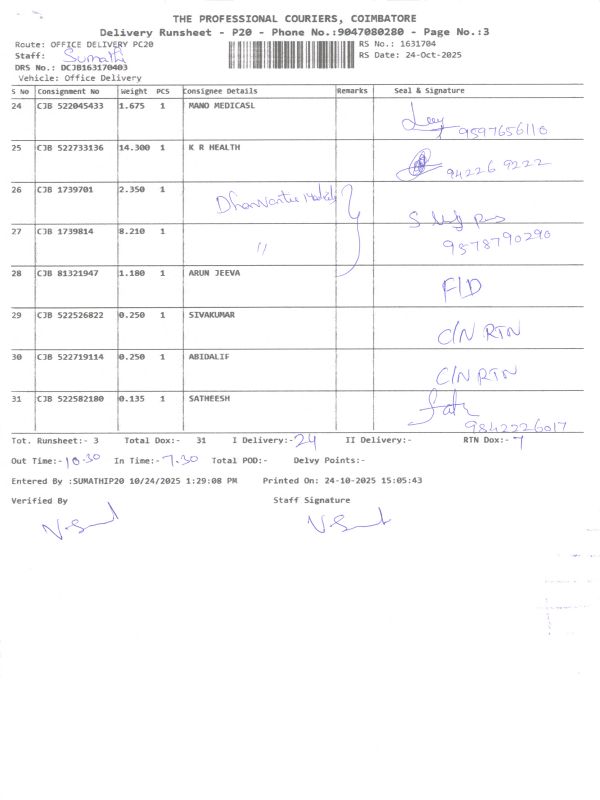 THE PROFESSIONAL COURIERS, COIMBATORE
Delivery Runsheet - P20 - Phone No.:9047080280 - Page No.:3
Route: OFFICE DELIVERY PC20 RS No.: 1631704
Staff: Sumathi RS Date: 24-Oct-2025
DRS No.: DCJB163170403
Vehicle: Office Delivery
S No Consignment No Weight PCS Consignee Details Remarks Seal & Signature
24 CJB 522045433 1.675 1 MANO MEDICASL
9597656110
25 CJB 522733136 14.300 1 K R HEALTH
94226 9222
26 CJB 1739701 2.350 1
27 CJB 1739814 8.210 1 〃 9578790290
28 CJB 81321947 1.180 1 ARUN JEEVA F/D
29 CJB 522526822 0.250 1 SIVAKUMAR C/N RTN
30 CJB 522719114 0.250 1 ABIDALIF C/N RTN
31 CJB 522582180 0.135 1 SATHEESH
9842226017
Tot. Runsheet:- 3 Total Dox:- 31 I Delivery:- 24 II Delivery:- RTN Dox:- 7
Out Time:- 10.30 In Time:- 7.30 Total POD:- Delvy Points:-
Entered By :SUMATHIP20 10/24/2025 1:29:08 PM Printed On: 24-10-2025 15:05:43
Verified By Staff Signature